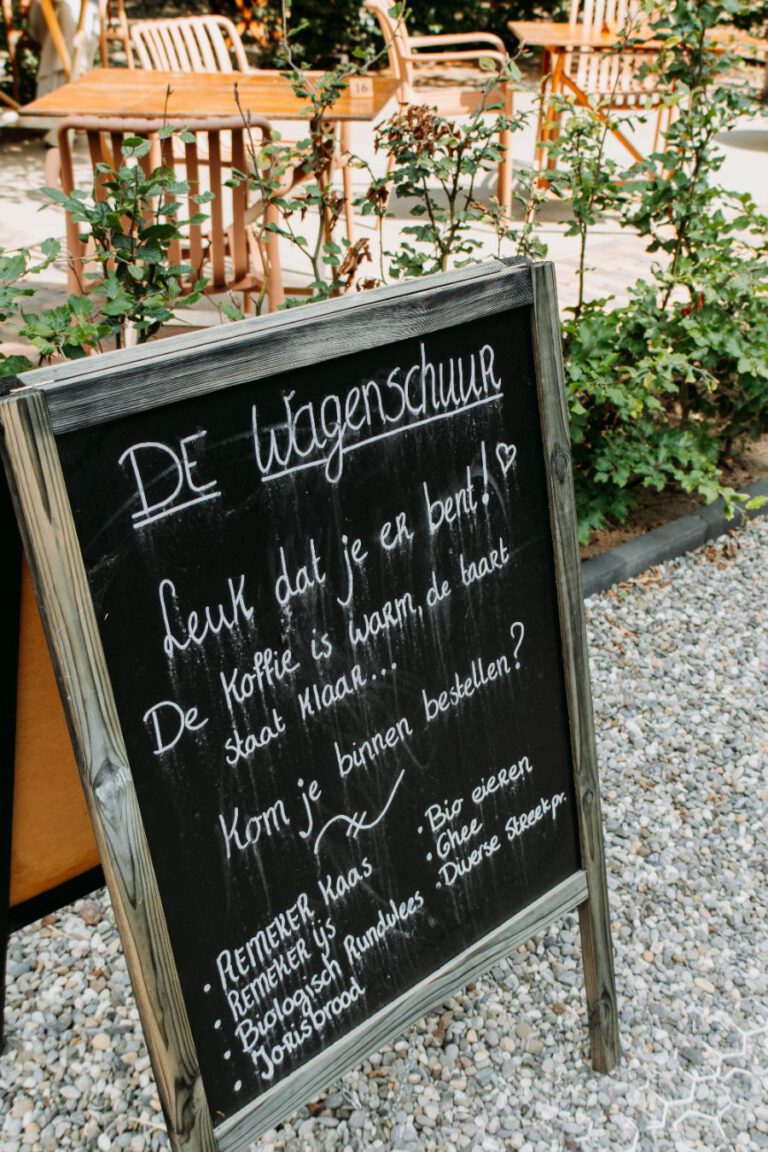 16
DE WagenschuuR
Leuk dat je eR bent!
De koffie is waRm, de taart
staat klaaR...
Kom je binnen bestellen?
• REMEKER kaas
• REMEKER ijs
• Biologisch Rundvlees
• Jorisbrood
• Bio eieren
• Ghee
• Diverse Streekpr.